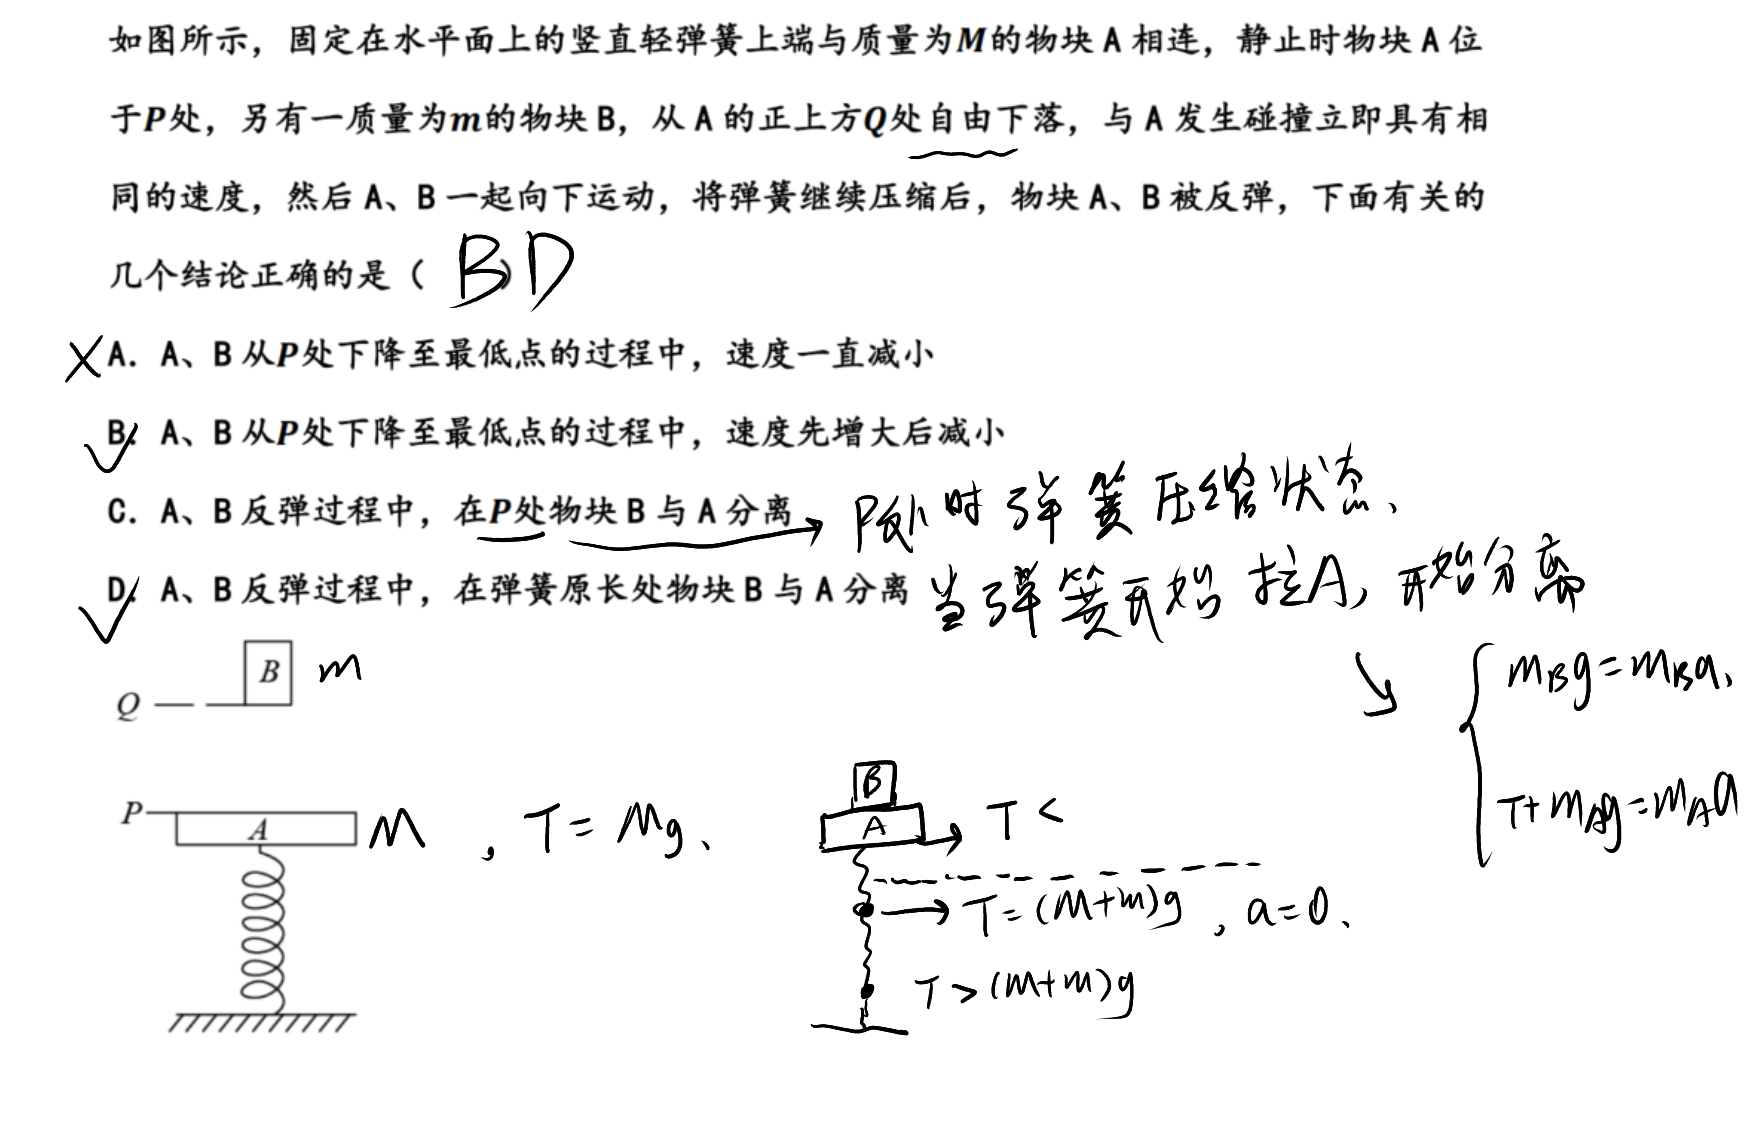 如图所示，固定在水平面上的竖直轻弹簧上端与质量为M的物块 A 相连，静止时物块 A 位
于P处，另有一质量为m的物块 B，从 A 的正上方Q处自由下落，与 A 发生碰撞立即具有相
同的速度，然后 A、B 一起向下运动，将弹簧继续压缩后，物块 A、B 被反弹，下面有关的
几个结论正确的是（ BD ）
A. A、B 从P处下降至最低点的过程中，速度一直减小
B. A、B 从P处下降至最低点的过程中，速度先增大后减小
C. A、B 反弹过程中，在P处物块 B 与 A 分离
P处时弹簧压缩状态、
D. A、B 反弹过程中，在弹簧原长处物块 B 与 A 分离
当弹簧开始拉A，开始分离
B
m
Q
mBg=mBa,
T+mAg=mAa
P
A
M , T=Mg、
B
A
T<
T=(M+m)g , a=0、
T>(M+m)g